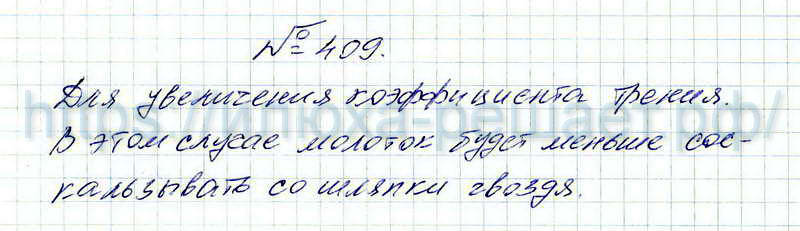 № 409.
Для увеличения коэффициента трения.
В этом случае молоток будет меньше сос-
кальзывать со шляпки гвоздя.